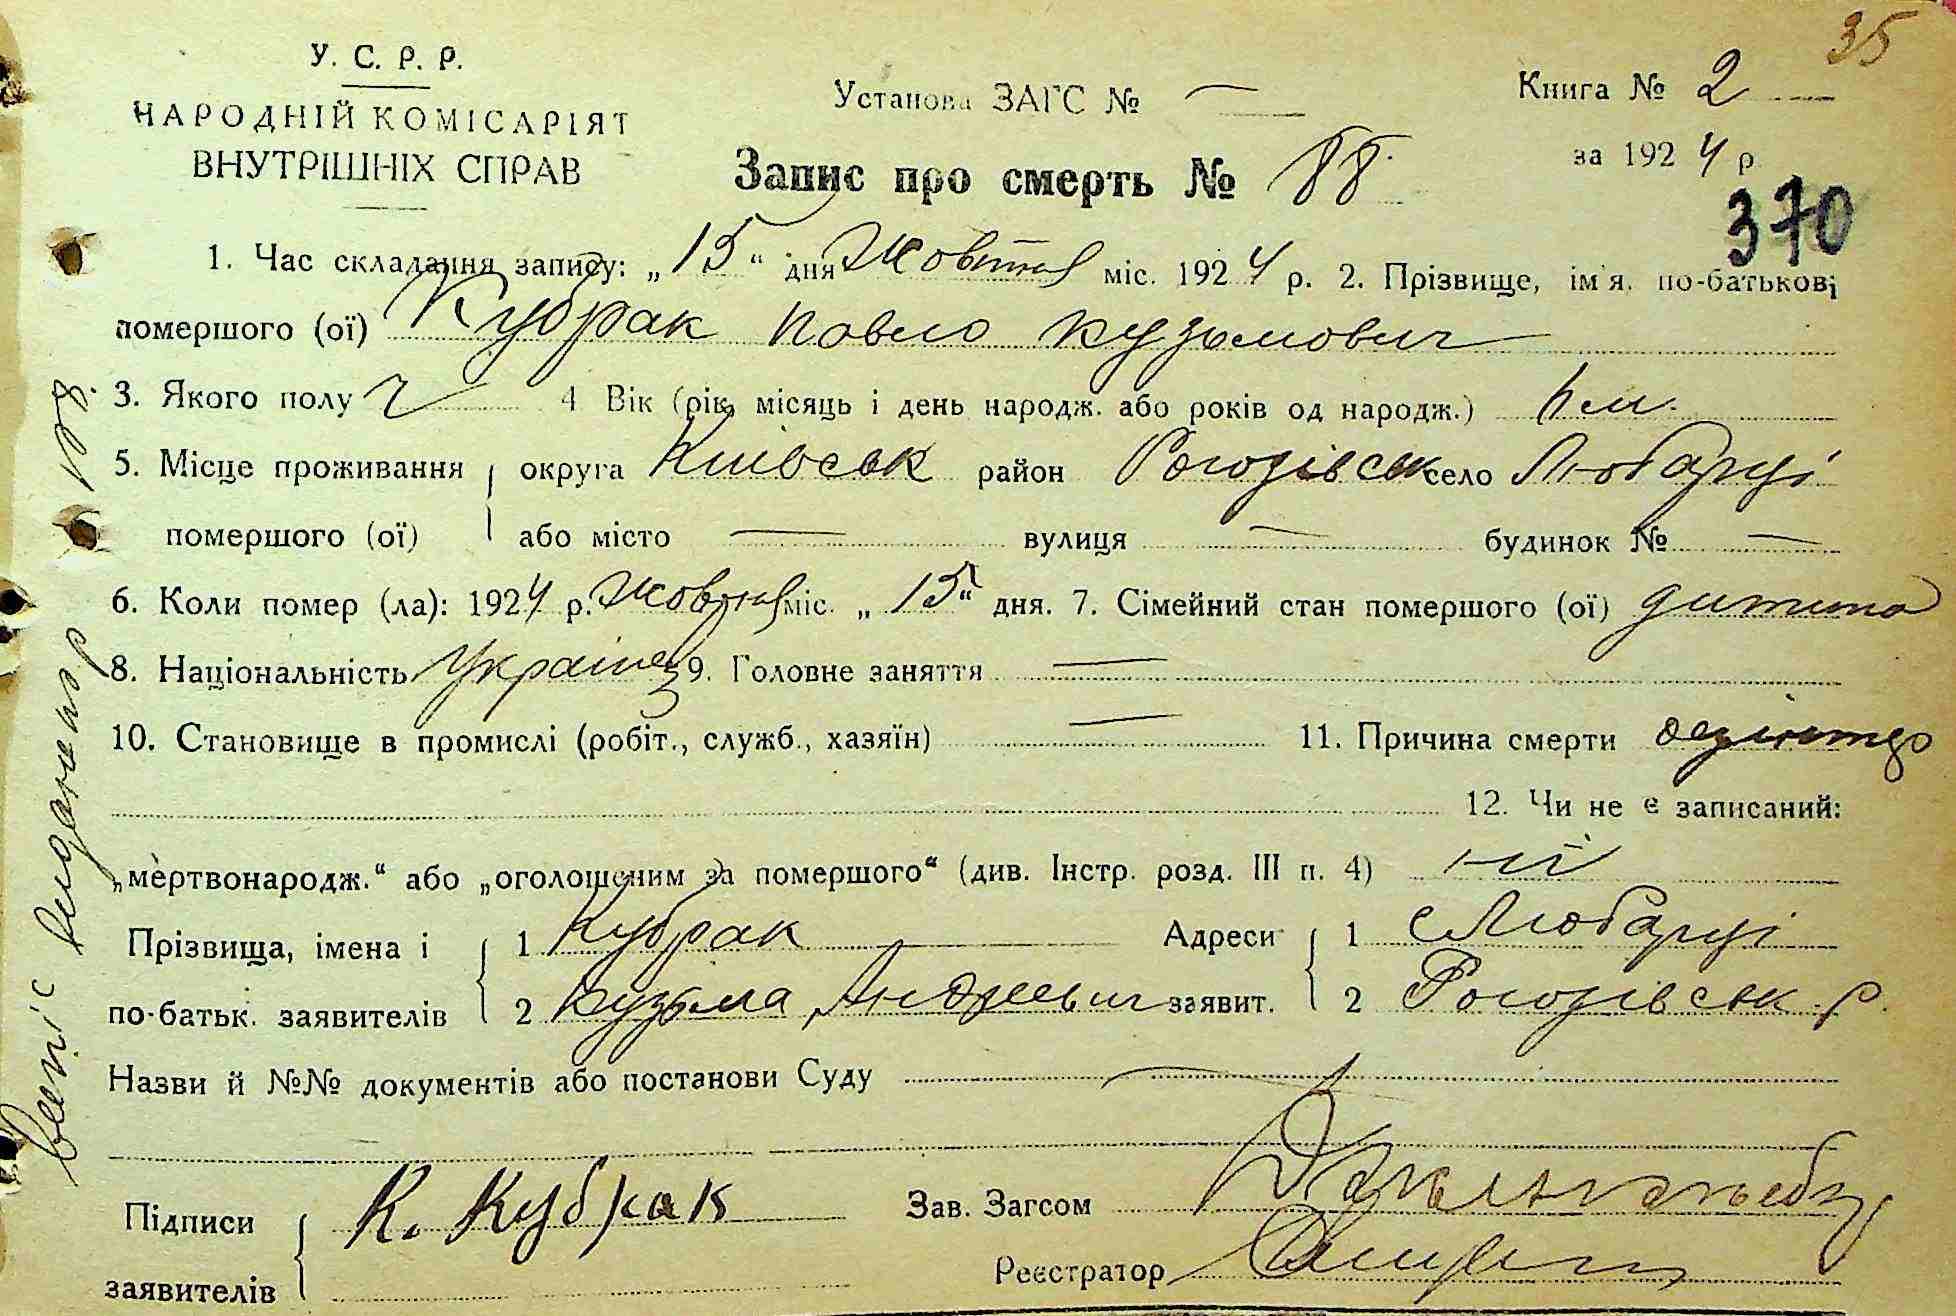 35
У. С. Р. Р.
НАРОДНІЙ КОМІСАРІЯТ
ВНУТРІШНІХ СПРАВ
Установа ЗАГС № —
Книга № 2
за 1924 р.
Запис про смерть № 88.
370
1. Час складання запису: „15“ дня Жовтня міс. 1924 р. 2. Прізвище, ім'я, по-батькові
помершого (ої) Кубрак Павло Кузьмович
3. Якого полу ч 4 Вік (рік, місяць і день народж. або років од народж.) м.
5. Місце проживання округа Київськ район Рогозівськ село Любарці
помершого (ої) або місто — вулиця — будинок № —
6. Коли помер (ла): 1924 р. Жовтня міс. „15“ дня. 7. Сімейний стан помершого (ої) дитина
8. Національність Українец 9. Головне заняття —
10. Становище в промислі (робіт., служб., хазяїн) — 11. Причина смерти
12. Чи не є записаний:
„мертвонародж.“ або „оголошеним за помершого“ (див. Інстр. розд. III п. 4) ні
Прізвища, імена і 1 Кубрак Адреси 1 с Любарці
по-батьк. заявителів 2 Кузьма Андреевич заявит. 2 Рогозівськ. р.
Назви й №№ документів або постанови Суду —
Підписи К. Кубрак Зав. Загсом
заявителів Реєстратор